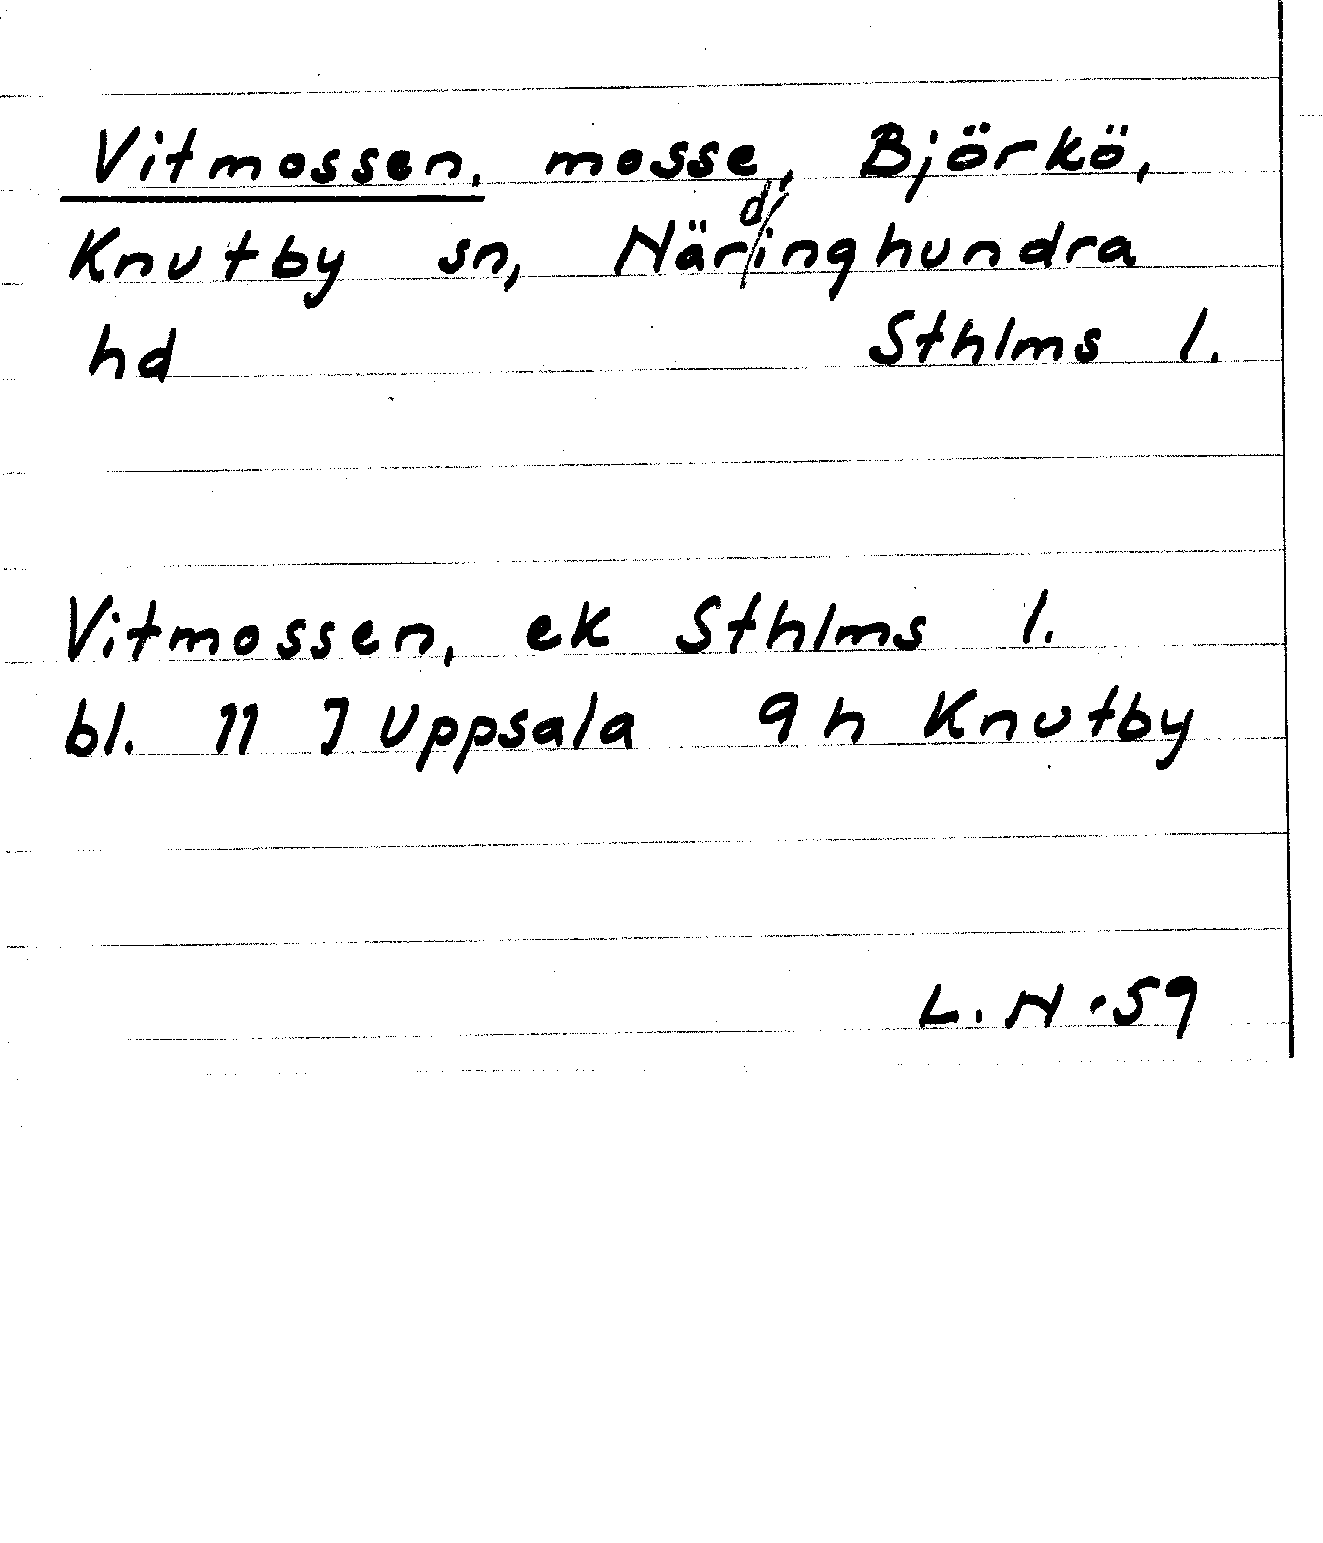 Vitmossen, mosse, Björkö,
Knutby sn, Närdinghundra
hd Sthlms l.
Vitmossen, ek Sthlms l.
bl. 11 I Uppsala 9h Knutby
L. N -59